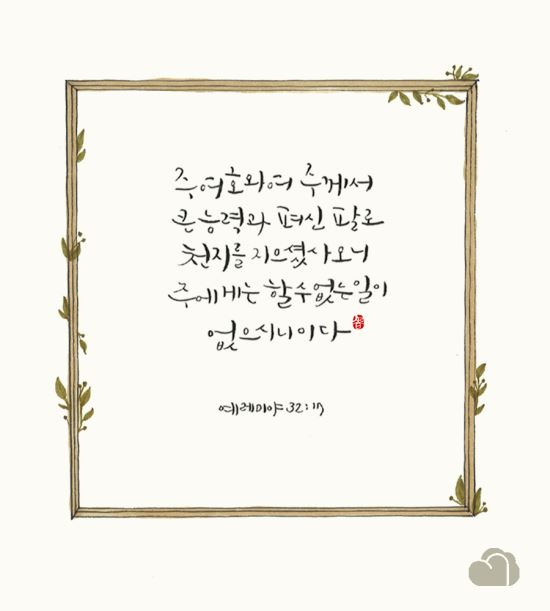 주 여호와여 주께서
큰 능력과 펴신 팔로
천지를 지으셨사오니
주에게는 할 수 없는 일이
없으시니이다
예레미야 32:17